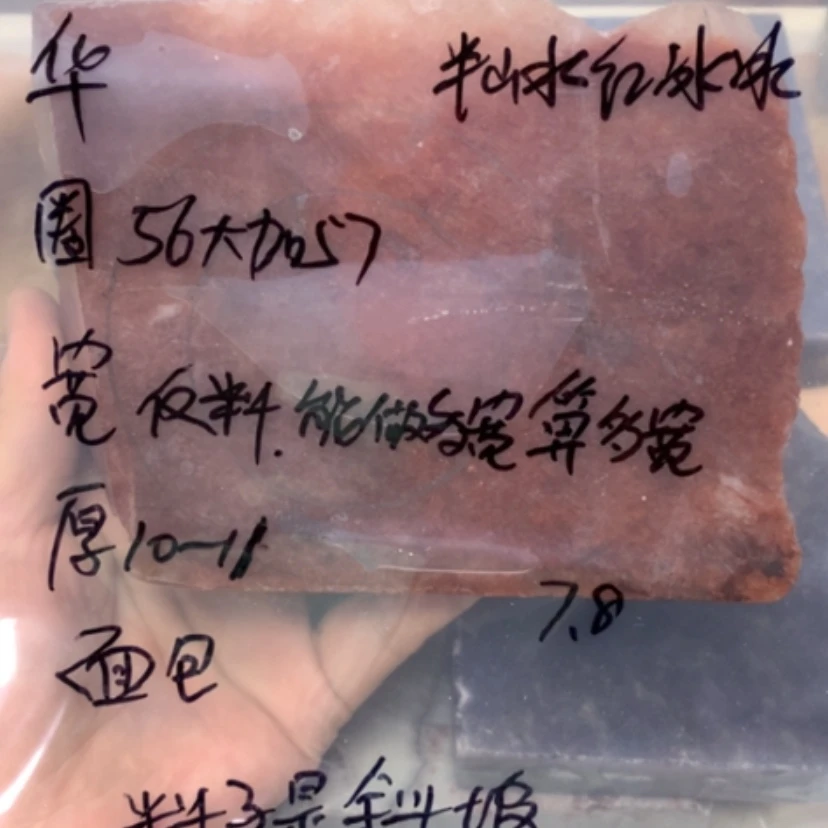 华 半山水红冰冰
圈 56大加57
宽 反料.能做多宽算多宽
厚10-11
7.8
面包
料子是斜坡